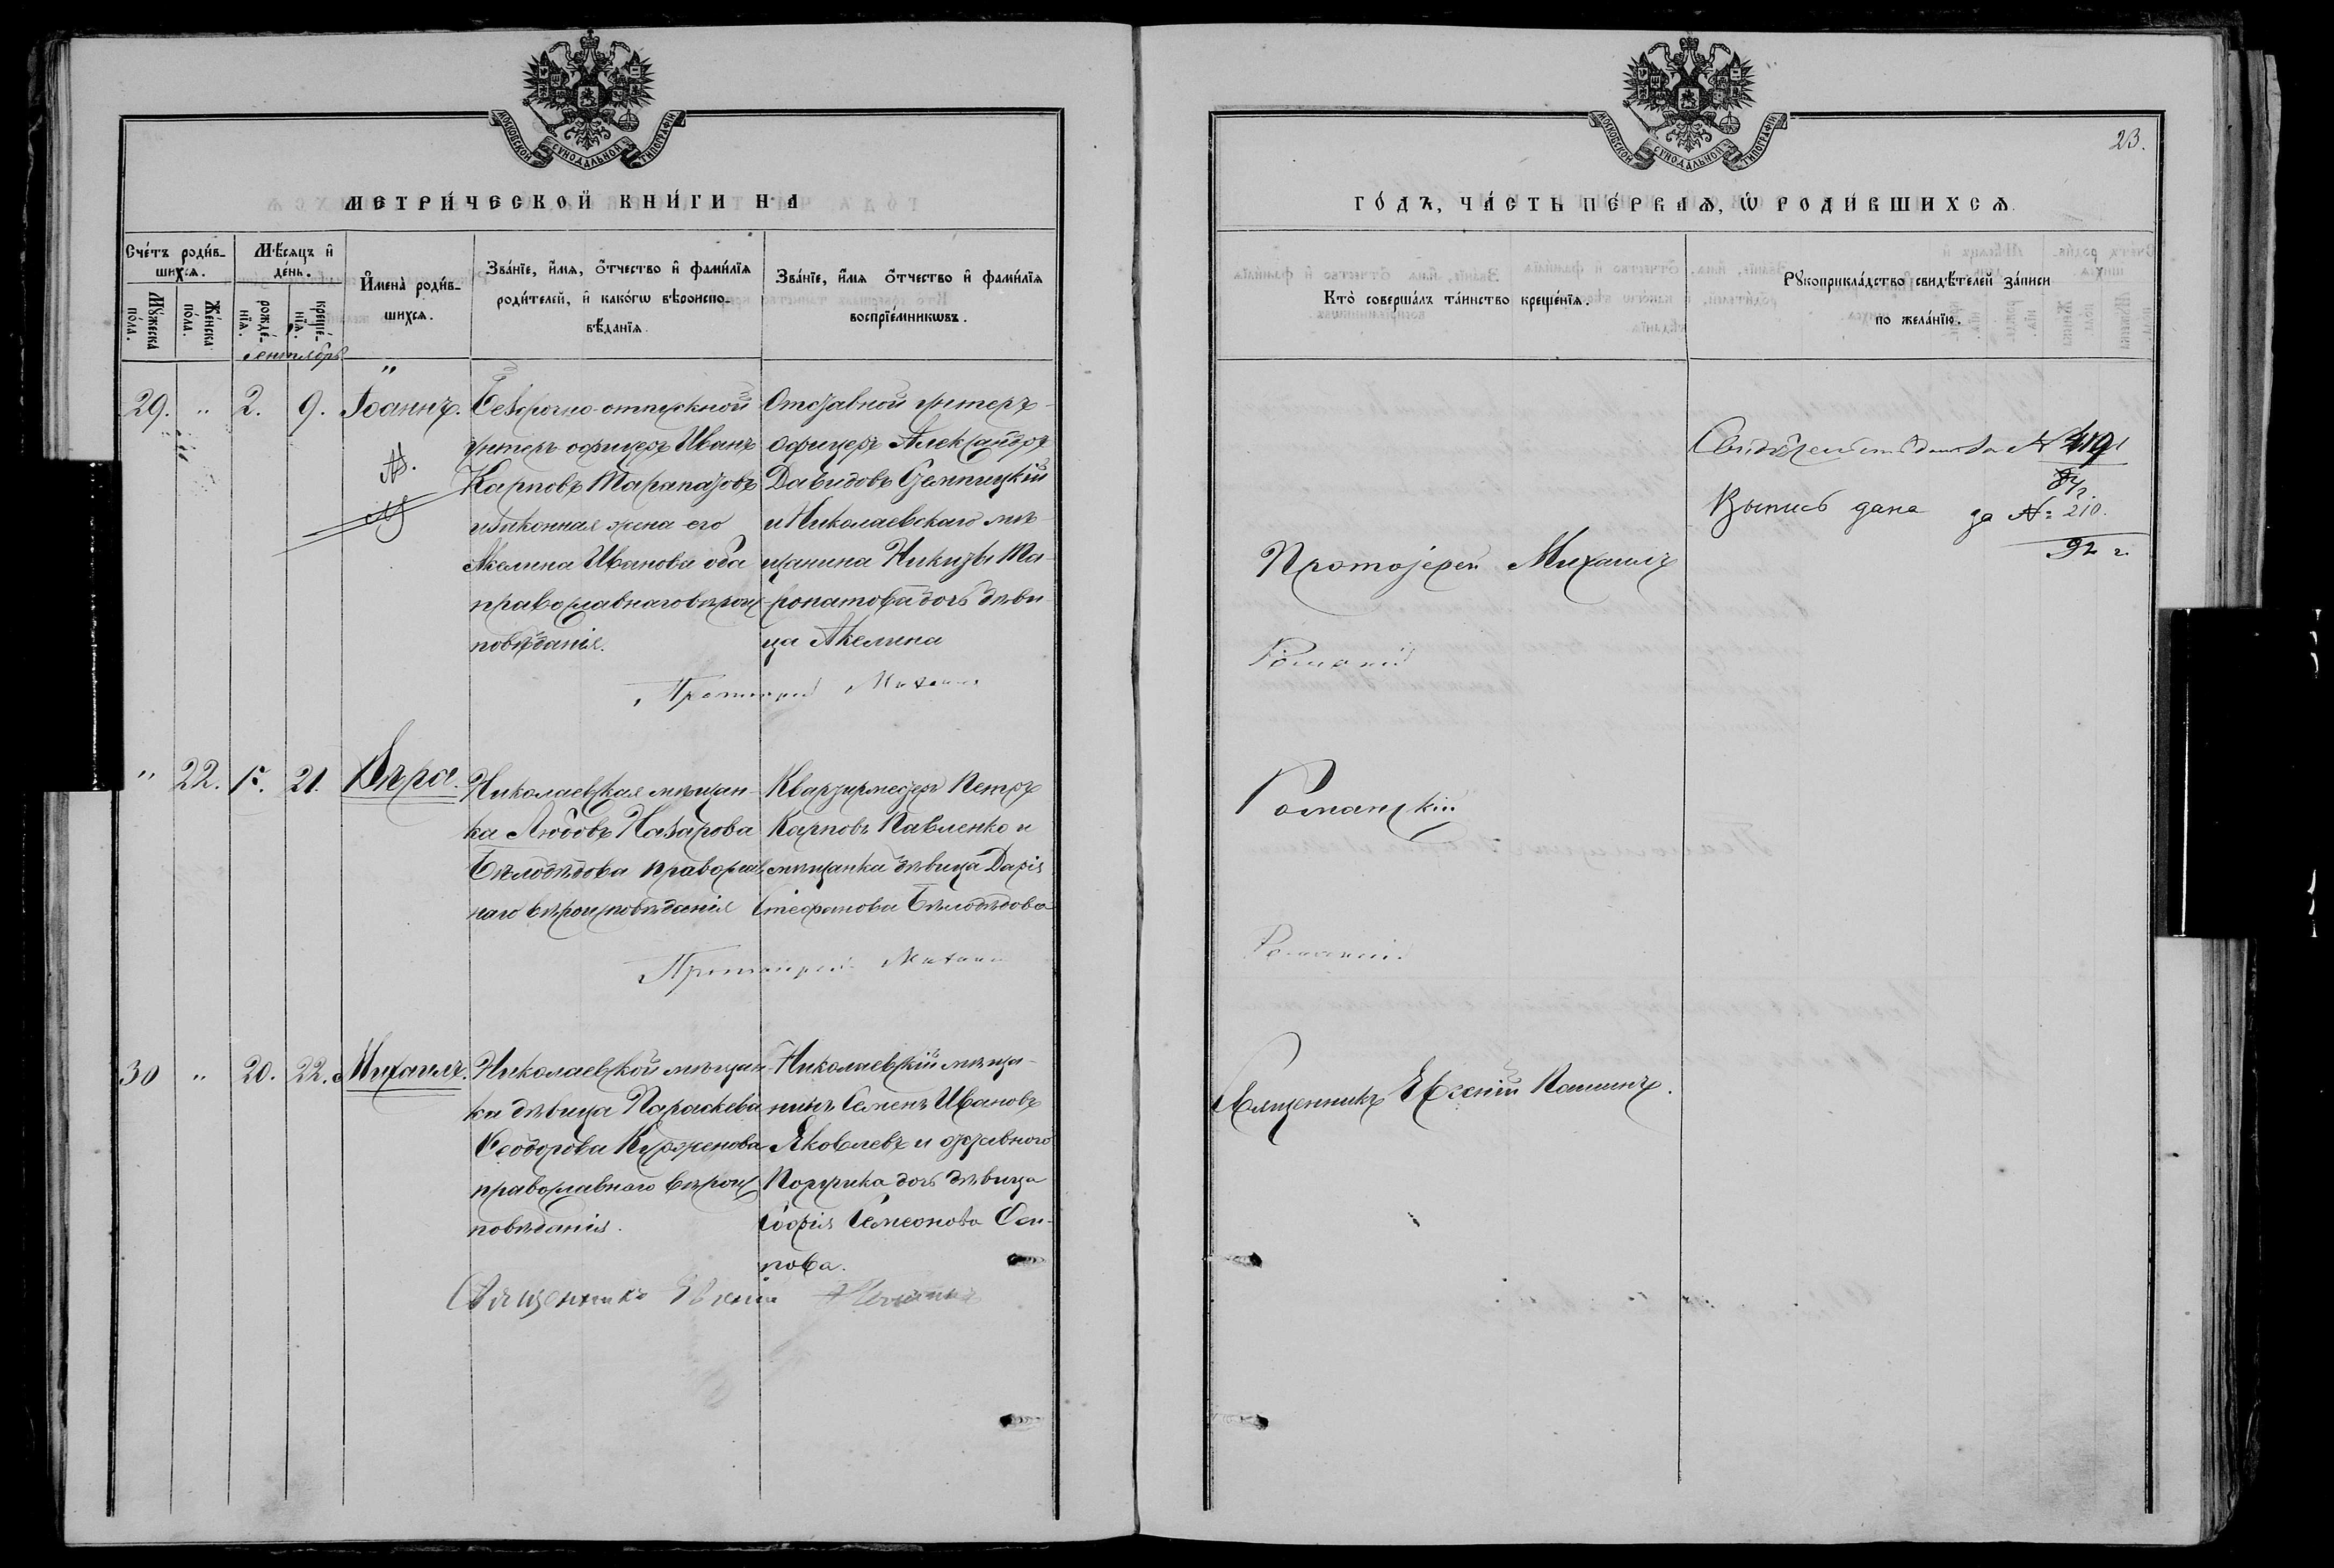 МОСКОВСКОЙ СѴНОДАЛЬНОЙ ТИПОГРАФІИ
МЕТРИ́ЧЕСКОЙ КНИ́ГИ НА
Сче́тъ роди́в-
шихсѧ.
Мꙋ́жеска по́ла.
Же́нска по́ла.
Мѣ́сѧцъ и҆ де́нь.
рожде́-нїѧ.
креще́-нїѧ.
И҆мена̀ роди́в-
шихсѧ.
Зва́нїе, и҆́мѧ, ѻ҆́тчество и҆ фами́лїѧ
роди́телей, и҆ како́гѡ вѣроиспо-
вѣ́данїѧ.
Зва́нїе, и҆́мѧ ѻ҆́тчество и҆ фами́лїѧ
воспрїе́мникѡвъ.
Сентябрь
29. " 2. 9. Іоаннъ.
Безсрочно-отпускной
унтеръ офицеръ Иванъ
Карповъ Тарапатовъ
и законная жена его
Акелина Иванова оба
православнаго вѣроис
повѣданія.
Отставной унтеръ-
офицеръ Александръ
Давидовъ
и Николаевскаго мѣ-
щанина Никиты Та-
ропатова дочь дѣви-
ца Акелина
Протоіерей Михаилъ
" 22. 15. 21. Вѣра.
Николаевская мѣщан-
ка Любовь Назарова
Бѣлодѣдова православ
наго вѣроисповѣданія
Квартирместръ Петръ
Карповъ Павленко и
мѣщанка дѣвица Дарія
Стефанова Бѣлодѣдова
Протоіерей Михаилъ
30 " 20. 22. Михаилъ.
Николаевской мѣщан
ки дѣвица Параскева
Ѳеодорова
православнаго вѣроис
повѣданія.
Николаевскій мѣща-
нинъ Семенъ Ивановъ
Яковлевъ и отставного
Поручика дочь дѣвица
Софія Симеонова Оси-
пова.
Священникъ Евгеній
МОСКОВСКОЙ СѴНОДАЛЬНОЙ ТИПОГРАФІИ
23.
ГО́ДЪ, ЧА́СТЬ ПЕ́РВАѦ, Ѡ҆ РОДИ́ВШИХСѦ.
Кто̀ соверша́лъ та́инство креще́нїѧ.
Рꙋкоприкла́дство свидѣ́телей за́писи
по жела́нїю.
Выпись дана за №: 210.
92 г.
Протоіерей Михаилъ
Романскій
Романскій
Романскій
Священникъ Евгеній